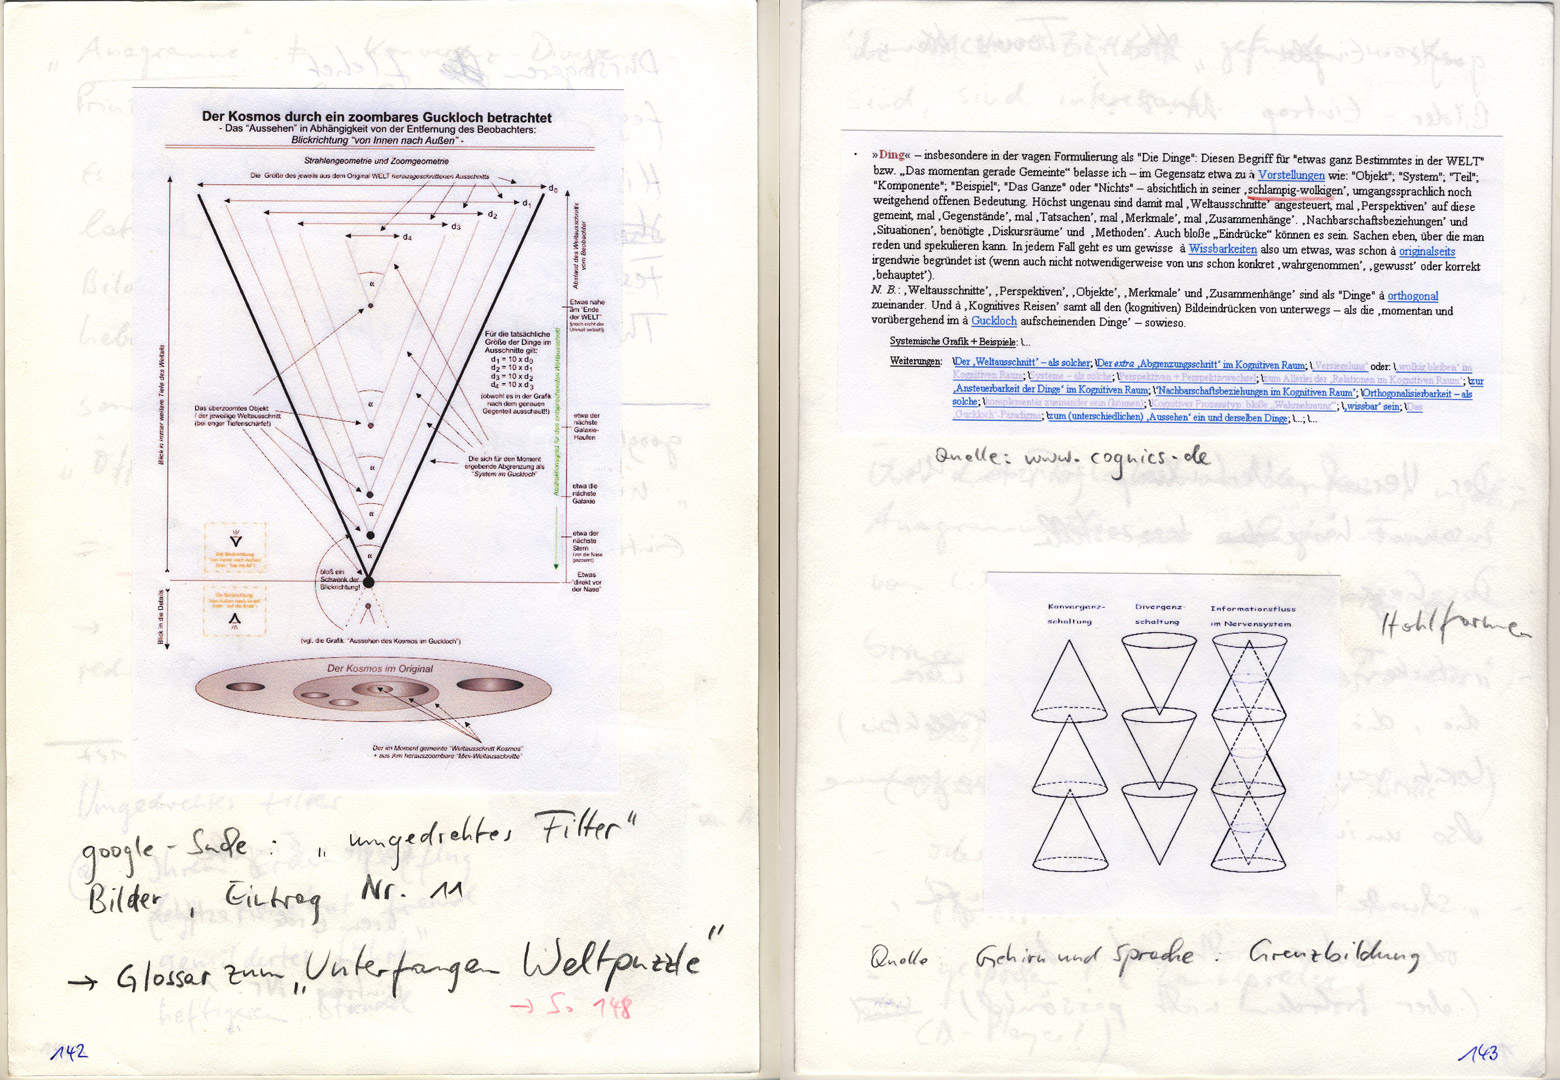 Der Kosmos durch ein zoombares Guckloch betrachtet
- Das "Aussehen" in Abhängigkeit von der Entfernung des Beobachters:
Blickrichtung "von Innen nach Außen" -
Strahlengeometrie und Zoomgeometrie
Die Größe des jeweils aus dem Original WELT herausgeschnittenen Ausschnitts
d0
d1
d2
d3
d4
Abstand des Weltausschnitts
vom Beobachter
Blick in immer weitere Tiefe des Weltalls
α
Etwas nahe
am "Ende
der WELT"
Für die tatsächliche
Größe der Dinge im
Ausschnitte gilt:
d1 = 10 x d0
d2 = 10 x d1
d3 = 10 x d2
d4 = 10 x d3
(obwohl es in der Grafik
nach dem genauen
Gegenteil ausschaut!!)
Das überzoomte Objekt
/ der jeweilige Weltausschnitt
(bei enger Tiefenschärfe!)
α
etwa der
nächste
Galaxie-
Haufen
Die sich für den Moment
ergebende Abgrenzung als
"System im Guckloch"
α
etwa die
nächste
Galaxie
α
etwa der
nächste
Stern
α
bloß ein
Schwenk der
Blickrichtung!
Etwas
"direkt vor
der Nase"
Blick in die Details
(vgl. die Grafik: "Aussehen des Kosmos im Guckloch")
Der Kosmos im Original
Der im Moment gemeinte "Weltausschnitt Kosmos"
+ aus ihm herauszoombare "Mini-Weltausschnitte"
google-Suche : „ umgedrehtes Filter"
Bilder , Eintrag Nr. 11
→ Glossar zum „Unterfangen Weltpuzzle"
→ S. 148
142
»Ding« – insbesondere in der vagen Formulierung als "Die Dinge": Diesen Begriff für "etwas ganz Bestimmtes in der WELT"
bzw. „Das momentan gerade Gemeinte" belasse ich – im Gegensatz etwa zu à Vorstellungen wie: "Objekt"; "System"; "Teil";
"Komponente"; "Beispiel"; "Das Ganze" oder "Nichts" – absichtlich in seiner ‚schlampig-wolkigen', umgangssprachlich noch
weitgehend offenen Bedeutung. Höchst ungenau sind damit mal ‚Weltausschnitte' angesteuert, mal ‚Perspektiven' auf diese
gemeint, mal ‚Gegenstände', mal ‚Tatsachen', mal ‚Merkmale', mal ‚Zusammenhänge'. ‚Nachbarschaftsbeziehungen' und
‚Situationen', benötigte ‚Diskursräume' und ‚Methoden'. Auch bloße „Eindrücke" können es sein. Sachen eben, über die man
reden und spekulieren kann. In jedem Fall geht es um gewisse à Wissbarkeiten also um etwas, was schon à originalseits
irgendwie begründet ist (wenn auch nicht notwendigerweise von uns schon konkret ‚wahrgenommen', ‚gewusst' oder korrekt
‚behauptet').
N. B.: ‚Weltausschnitte', ‚Perspektiven', ‚Objekte', ‚Merkmale' und ‚Zusammenhänge' sind als "Dinge" à orthogonal
zueinander. Und à ‚Kognitives Reisen' samt all den (kognitiven) Bildeindrücken von unterwegs – als die ‚momentan und
vorübergehend im à Guckloch aufscheinenden Dinge' – sowieso.
Systemische Grafik + Beispiele: \...
Weiterungen: \Der ‚Weltausschnitt' – als solcher; \Der extra ‚Abgrenzungsschritt' im Kognitiven Raum; \‚Versiegelung' oder: \‚wolkig bleiben' im
Kognitiven Raum; \Systeme – als solche; \Perspektiven + Perspektivwechsel; \zum Allerlei der ‚Relationen im Kognitiven Raum'; \zur
‚Ansteuerbarkeit der Dinge' im Kognitiven Raum; \"Nachbarschaftsbeziehungen im Kognitiven Raum"; \Orthogonalisierbarkeit – als
solche; \komplementär zueinander sein (können); \Kognitiver Prozesstyp: bloße „Wahrnehmung"; \‚wissbar' sein; \Das
‚Guckloch'-Paradigma; \zum (unterschiedlichen) ‚Aussehen' ein und derselben Dinge; \...; \...
Quelle: www.cognics.de
Konvergenz-
schaltung
Divergenz-
schaltung
Informationsfluss
im Nervensystem
Hohlformen
Quelle: Gehirn und Sprache : Grenzbildung
143